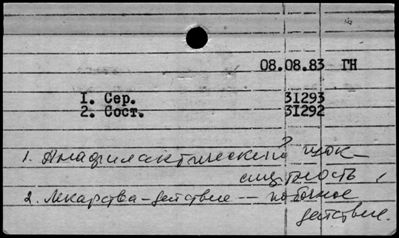 08.08.83 ГН
1. Сер. 31293
2. Сост. 31292
1. Анафилактический шок –
смертность,
2. Лекарства – действие – побочное
действие.